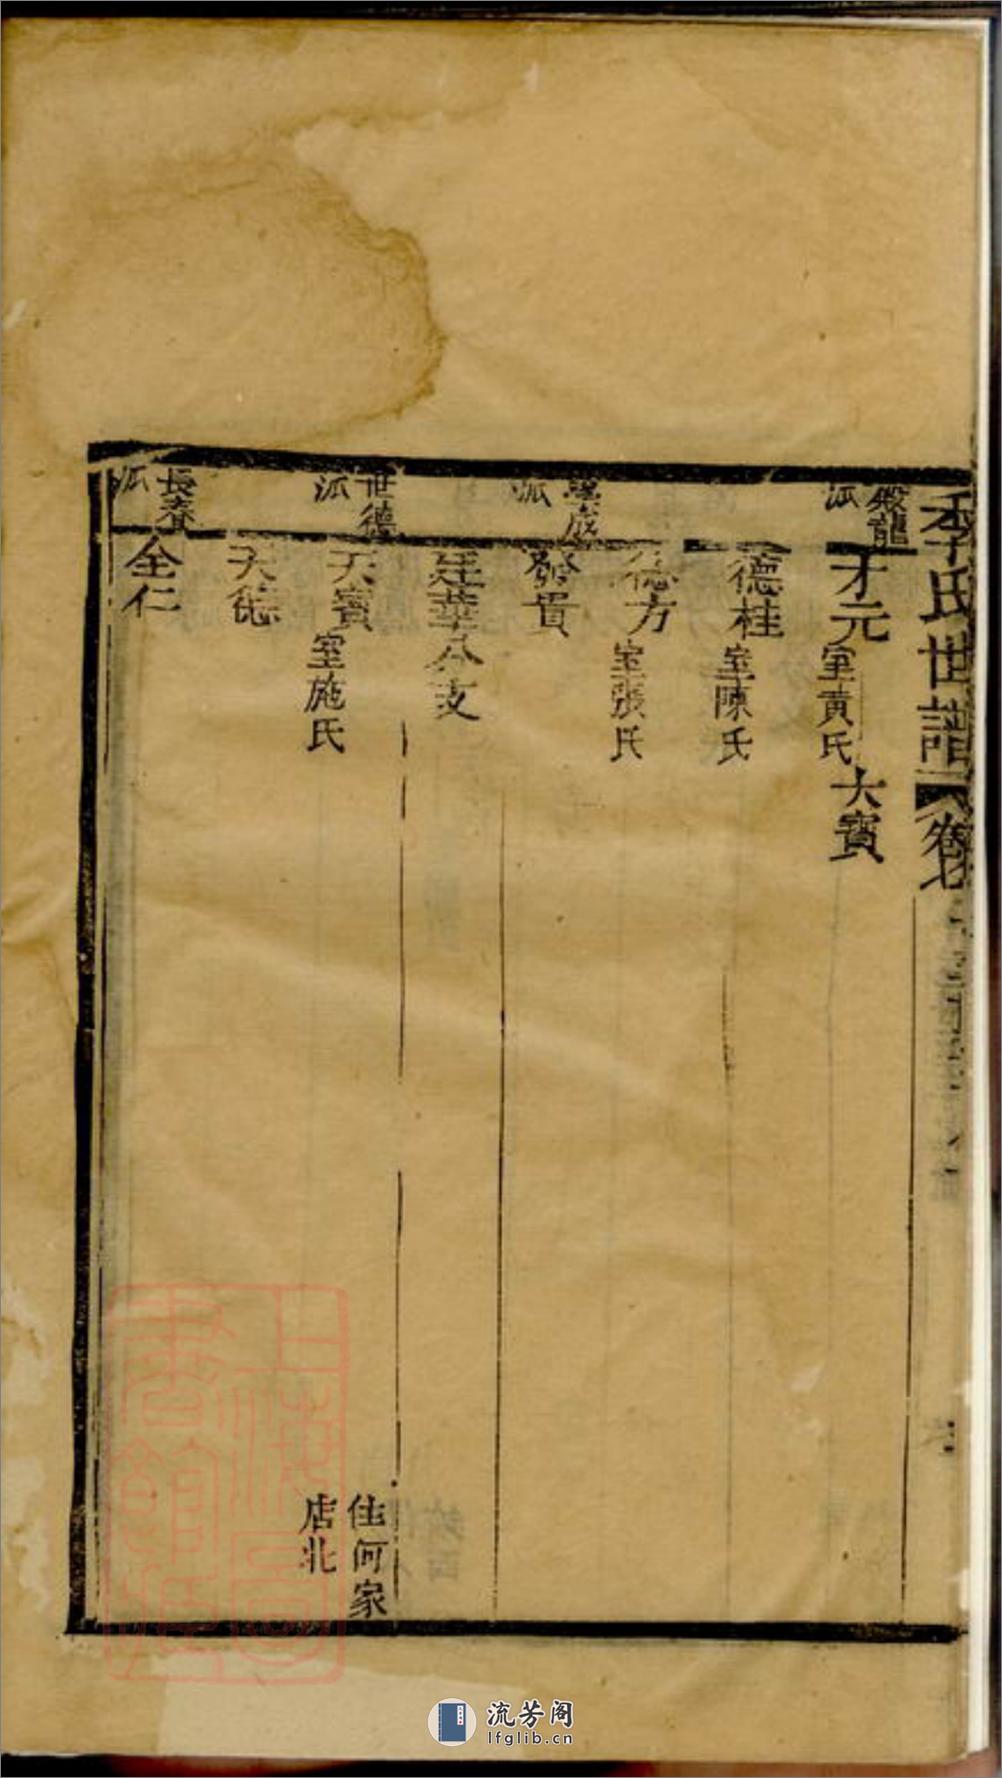 季氏世譜 卷七
殿龍派
才元 室黃氏 大寶
德桂 室陳氏
德方 室張氏
成派
發貴
廷華公支
世德派
天賓 室施氏
住何家店北
天德
長春派
全仁
上海圖書館藏
流芳阁
lfglib.cn